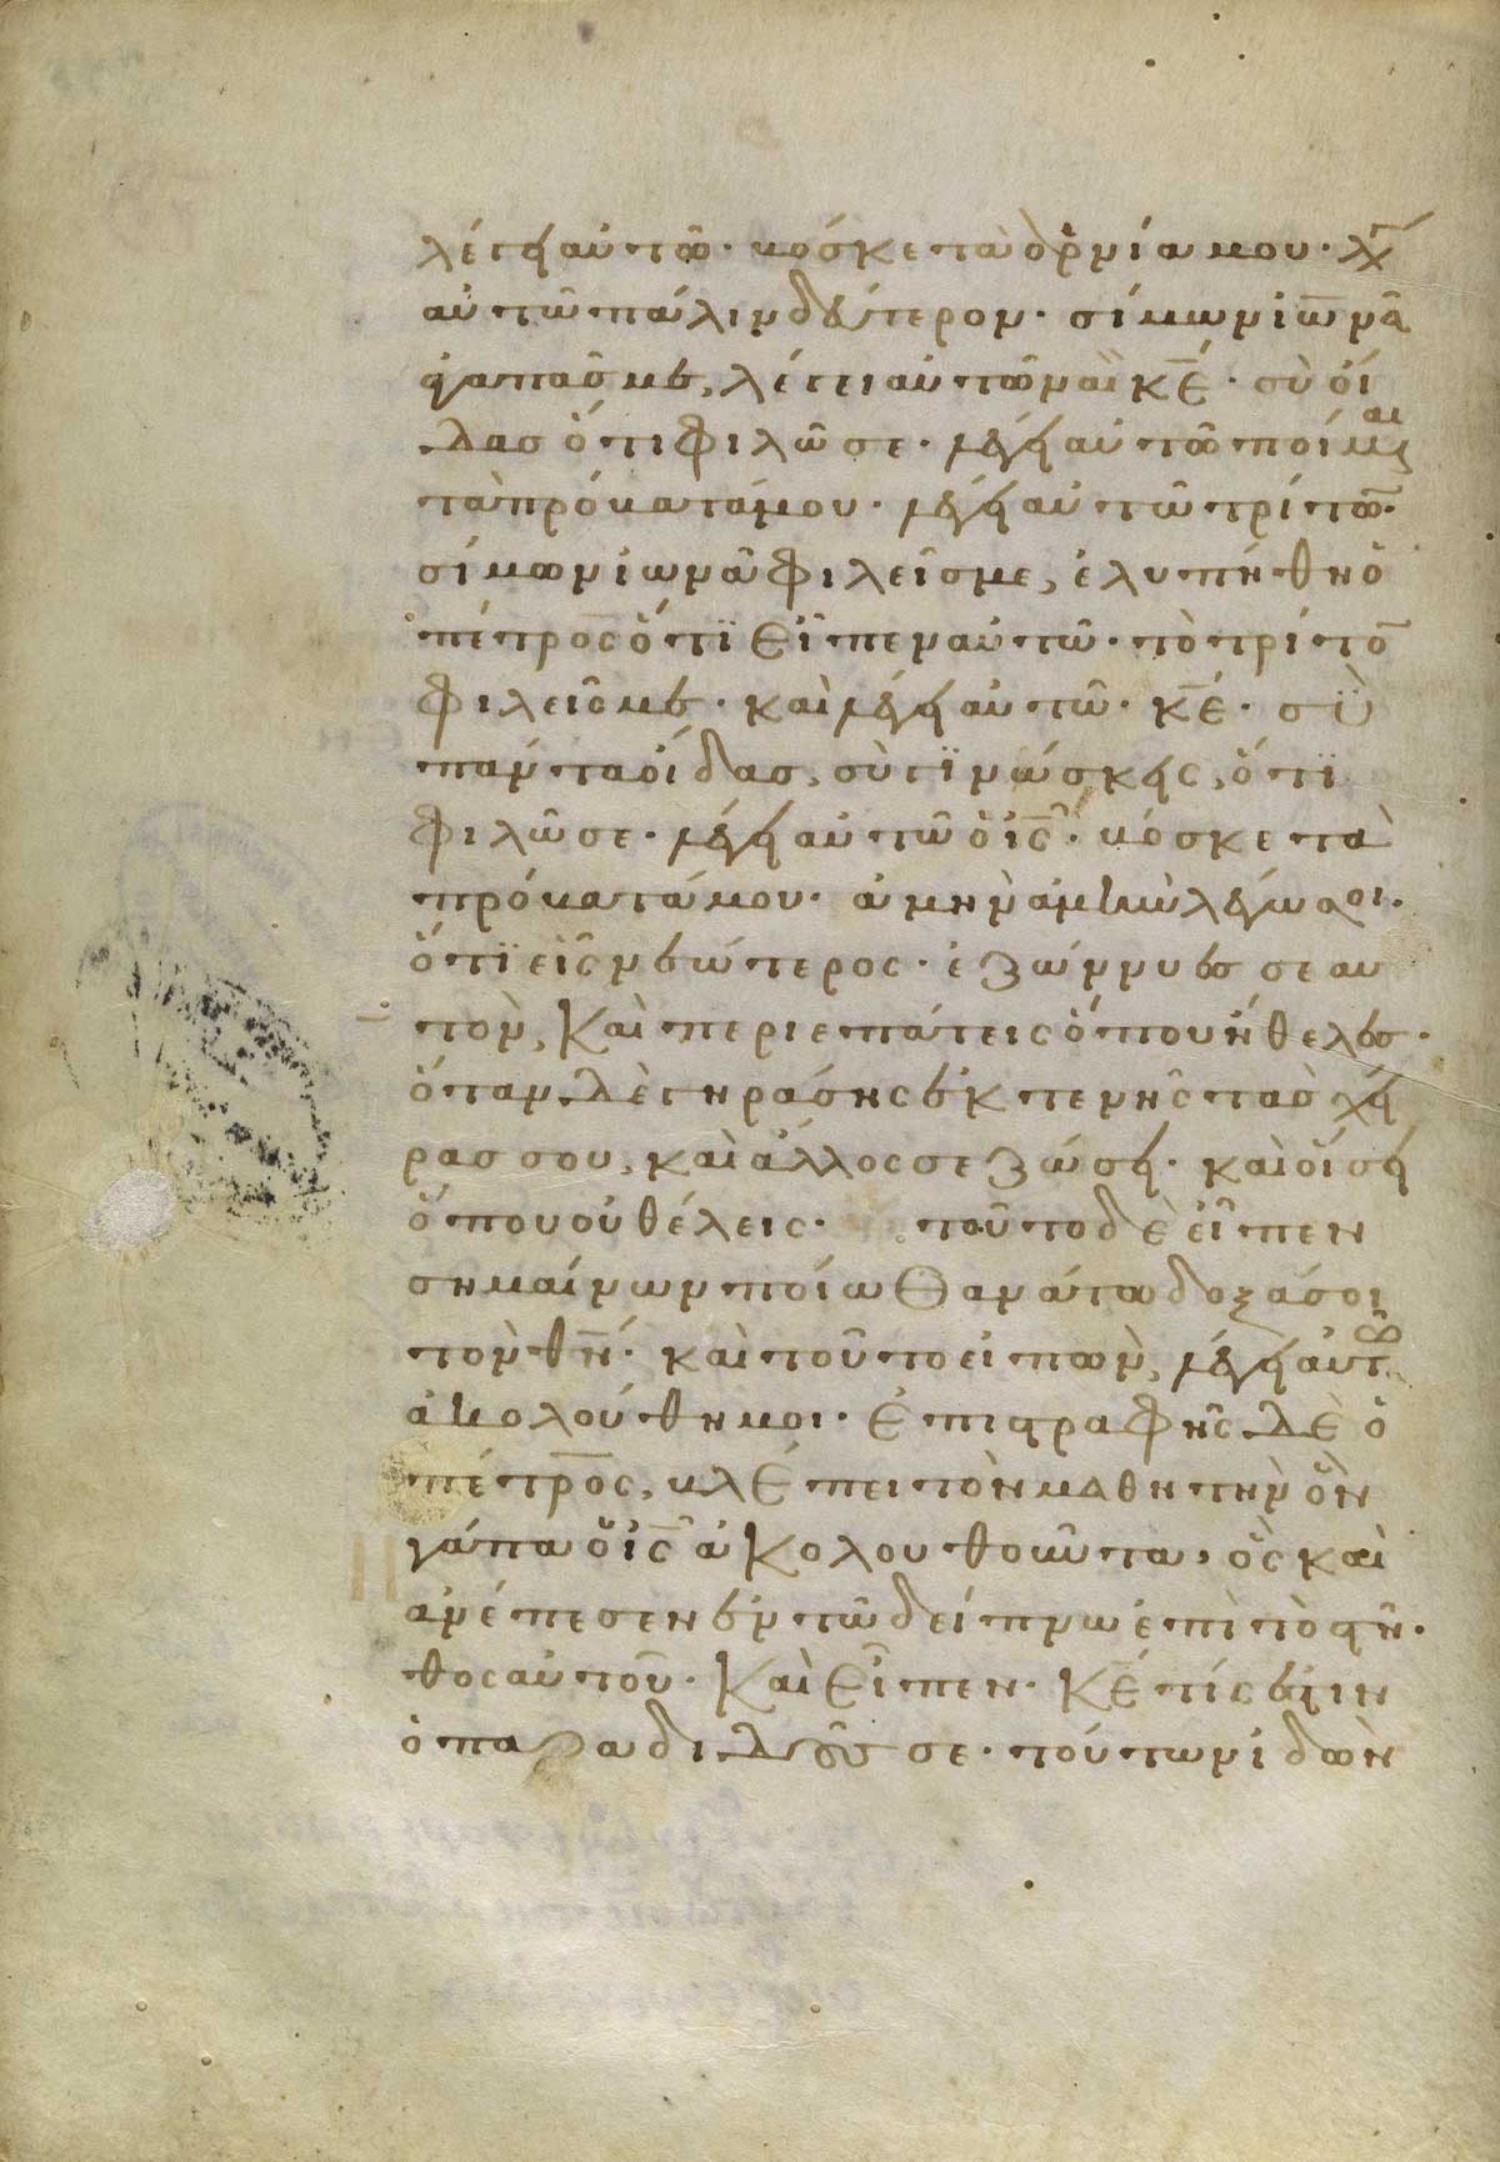 λέγει αὐτῶ· βόσκε τὰ ἀρνία μου· λέγει
αὐτῶ πάλιν δεύτερον· σίμων ἰωνᾶ
ἀγαπᾶσ με, λέγει αὐτῶ ναὶ κ̅ε̅· σὺ οἶ
δασ ὅτι φιλῶ σε· λέγει αὐτῶ ποίμαινε
τὰ πρόβατά μου· λέγει αὐτῶ τρίτον·
σίμων ἰωνᾶ φιλεῖσ με, ἐλυπήθη ὁ
πέτρος ὅτϊ εἶπεν αὐτῶ· τὸ τρίτο̅
φιλεῖς με· καὶ λέγει αὐτῶ· κ̅ε̅· σὺ
πάντα οἶδασ, σὺ γϊνώσκεις, ὅτϊ
φιλῶ σε· λέγει αὐτῶ ὁ ι̅ς̅· βόσκε τὰ
πρόβατά μου· ἀμὴν ἀμὴν λέγω σοι·
ὅτϊ εἶς νεώτερος· ἐζώννυες σεαυ
τὸν, καὶ περιεπάτεις ὅπου ἤθελες·
ὅταν δὲ γηράσης ἐκτενῆς τὰσ χεῖ
ρασ σου, καὶ ἄλλος σε ζώσει· καὶ οἴσει
ὅπου οὐ θέλεις· τοῦτο δὲ εἶπεν
σημαίνων ποίω θανάτω δοξάσει
τὸν θ̅ν̅· καὶ τοῦτο εἰπὼν, λέγει αὐτῶ
ἀκολούθη μοι· ἐπιστραφῆς δὲ ὁ
πέτρος, βλέπει τὸν μαθητὴν ὃν
γάπα ὁ ι̅ς̅ ἀκολουθοῦντα, ὃς καὶ
ἀνέπεσεν ἐν τῶ δείπνω ἐπὶ τὸ στῆ·
θος αὐτοῦ· καὶ εἶπεν· κ̅ε̅ τίς ἐστιν
ὁ παραδιδούς σε· τούτων ἰδὼν